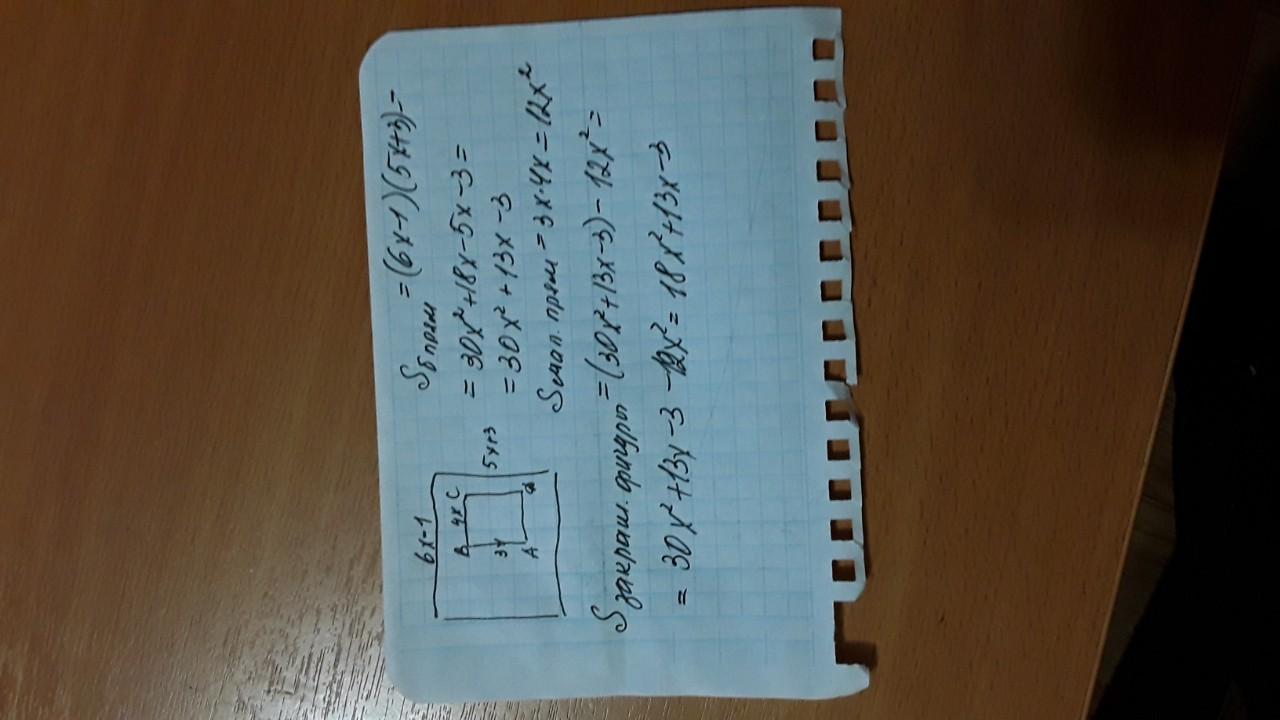 6x-1
B 4x C
3x
A
5x+3
S б прям = (6x-1)(5x+3)=
= 30x²+18x-5x-3=
= 30x²+13x-3
S мал. прям = 3x·4x = 12x²
S закраш. фигуры = (30x²+13x-3)-12x²=
= 30x²+13x-3-12x²= 18x²+13x-3